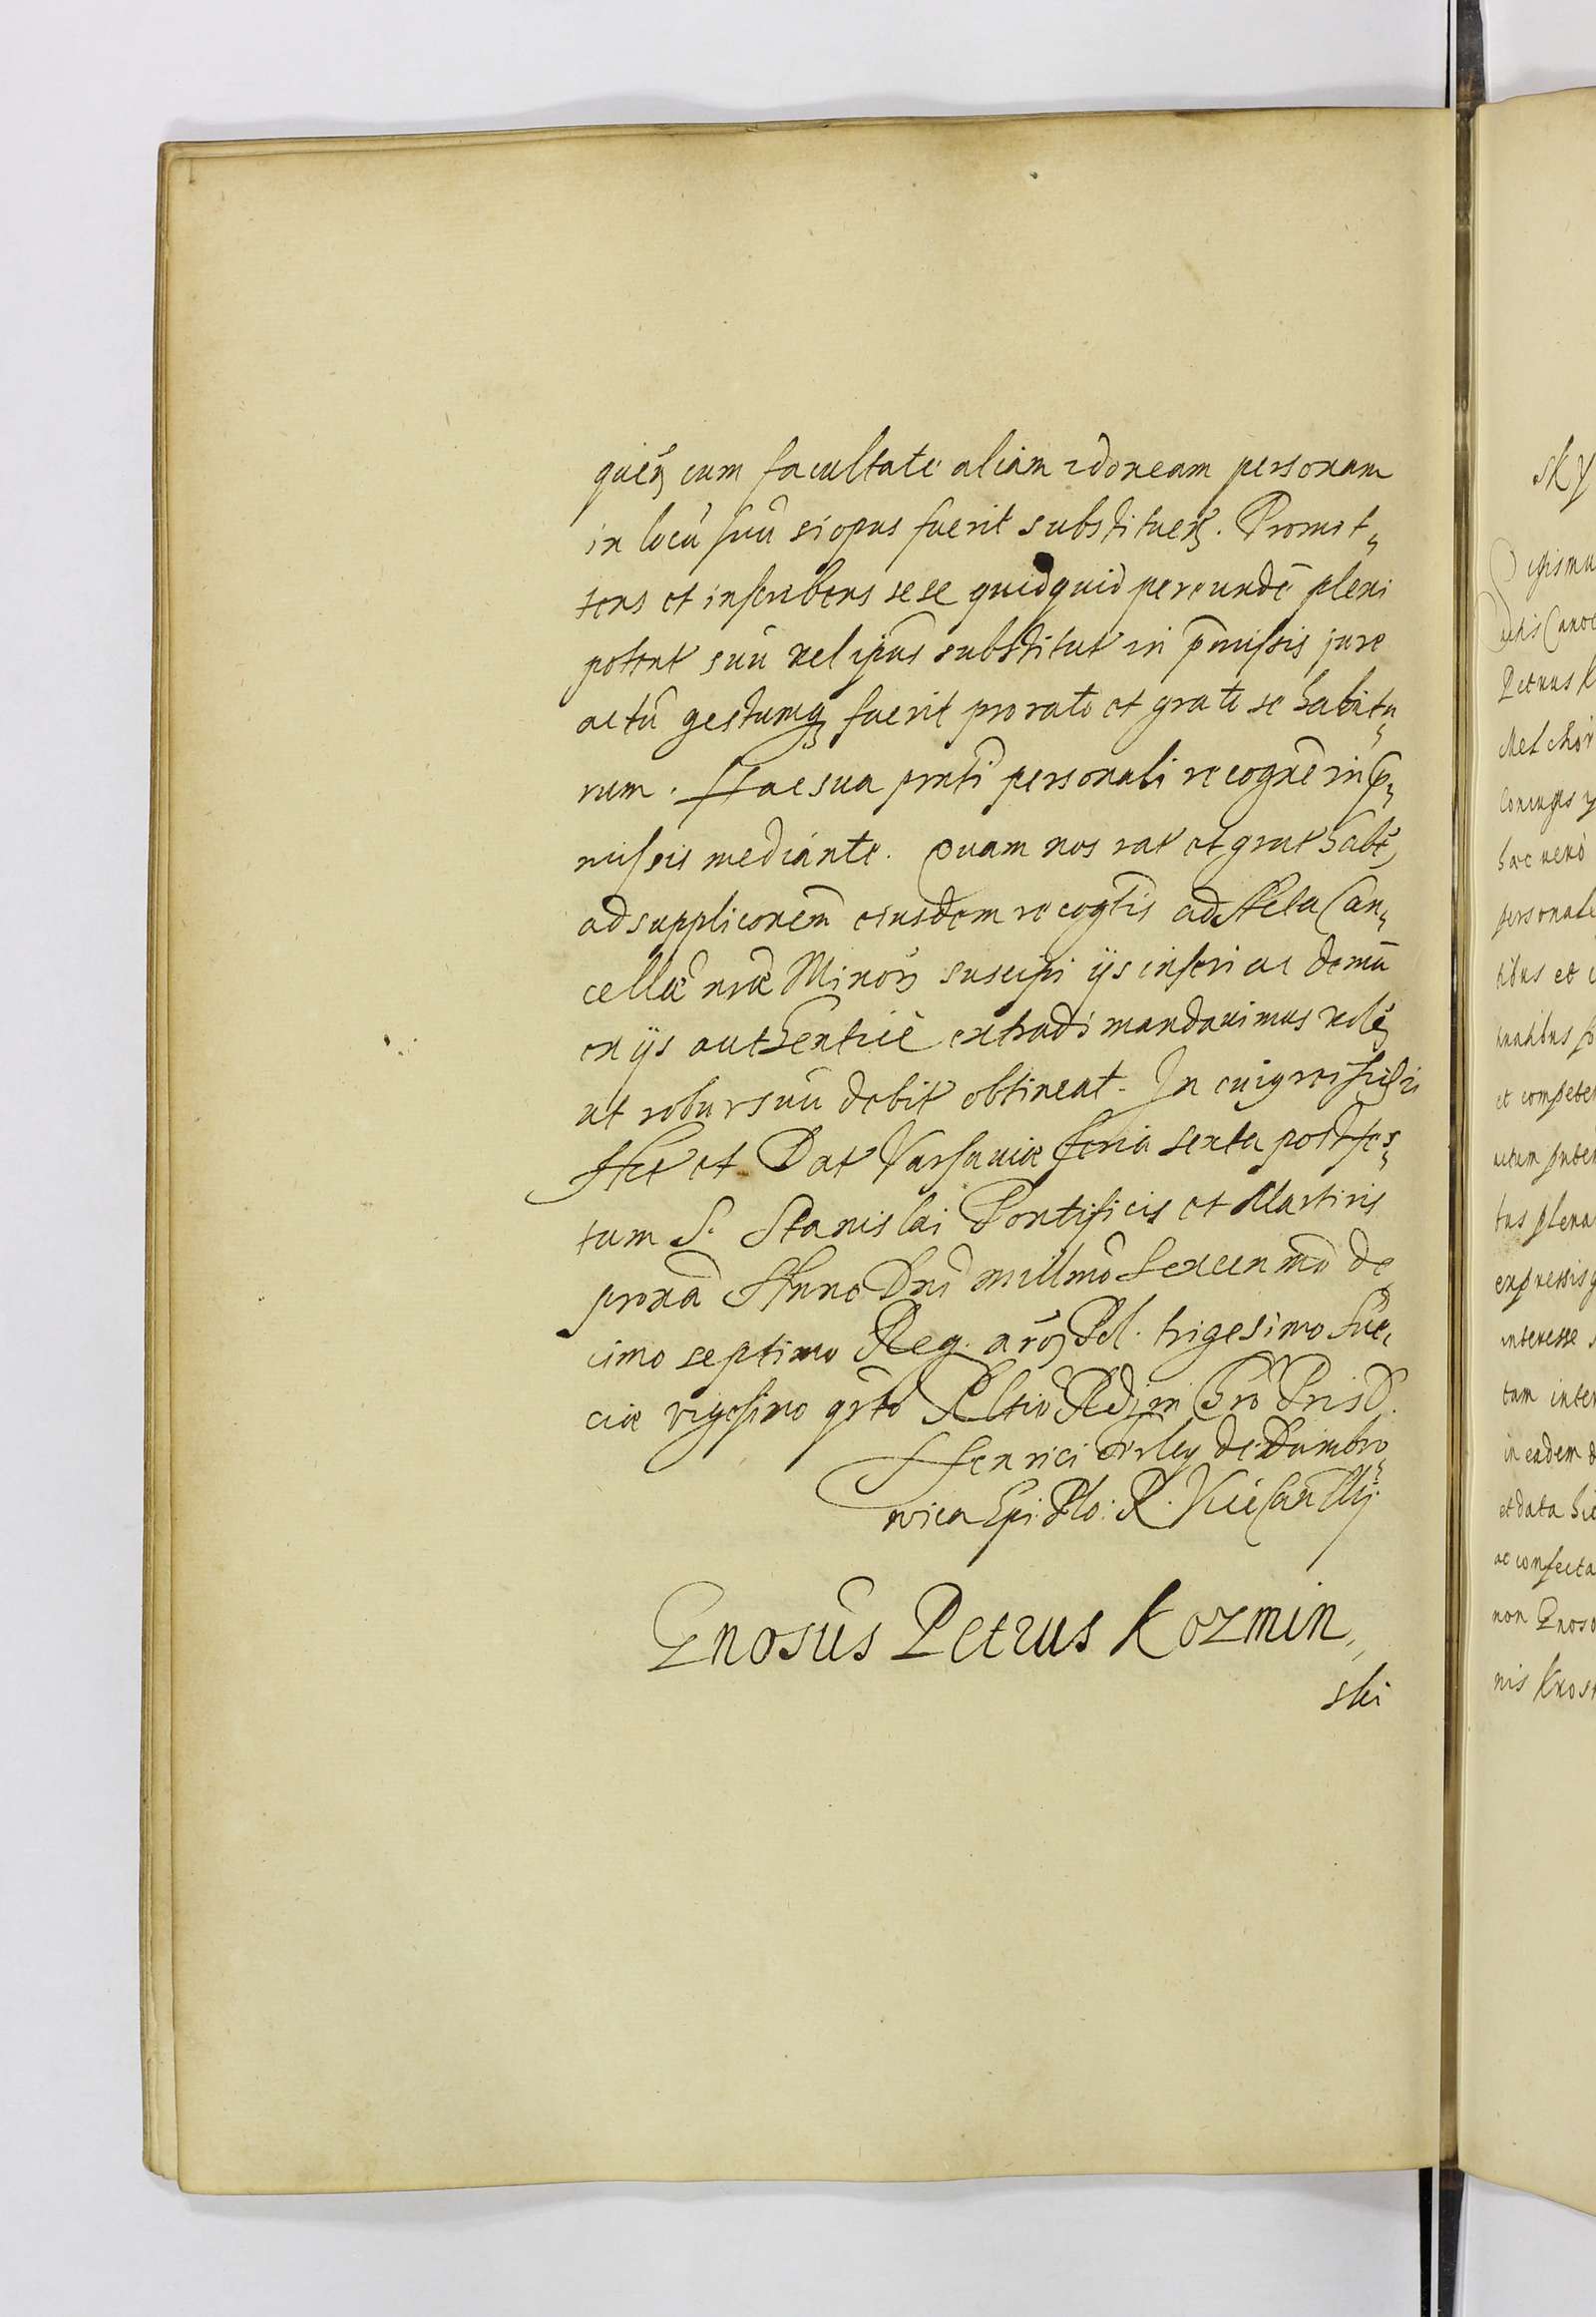 quēn cum facultate aliam idoneam personam
in locū suū si opus fuerit substituen. Promit-
tens et inscribens sese quidquid per eundē pleni
potent suū vel ipius substitut in pmissis jure
actū gestumq fuerit pro rato et grato se habitu-
rum. Hac sua pnti personali recogne in p-
missis mediante. Quam nos rat et grat habē
ad suppliconem eiusdem recogtis ad Acta Can-
cellæ nræ Minor suscipi ijs inseri ac demū
ex ijs authenticè extradi mandavimus
ut robur suū debit obtineat. In cuig rei
Act et Dat Varsaviæ feria sexta post fes-
tum S. Stanislai Pontificis et Martiris
proxa Anno Dni millmo Sexcenmo de
cimo septimo Reg. nror Pol. trigesimo Sue-
ciæ vigesimo qrto Rltio Rdi in Chro Pris D.
Henrici Firley de Dambro-
wica Epi: Plo: R. Vicecanllrij
Gnosus Petrus Kozmin-
ski
sky
Petrus K
Melchior
Coniuges
hæc vero
personale
tibus et
et compete
tus plena
expressis
interesse
tum inter
in eadem
et data hic
ac confecta
non Gnoso
nis Krost